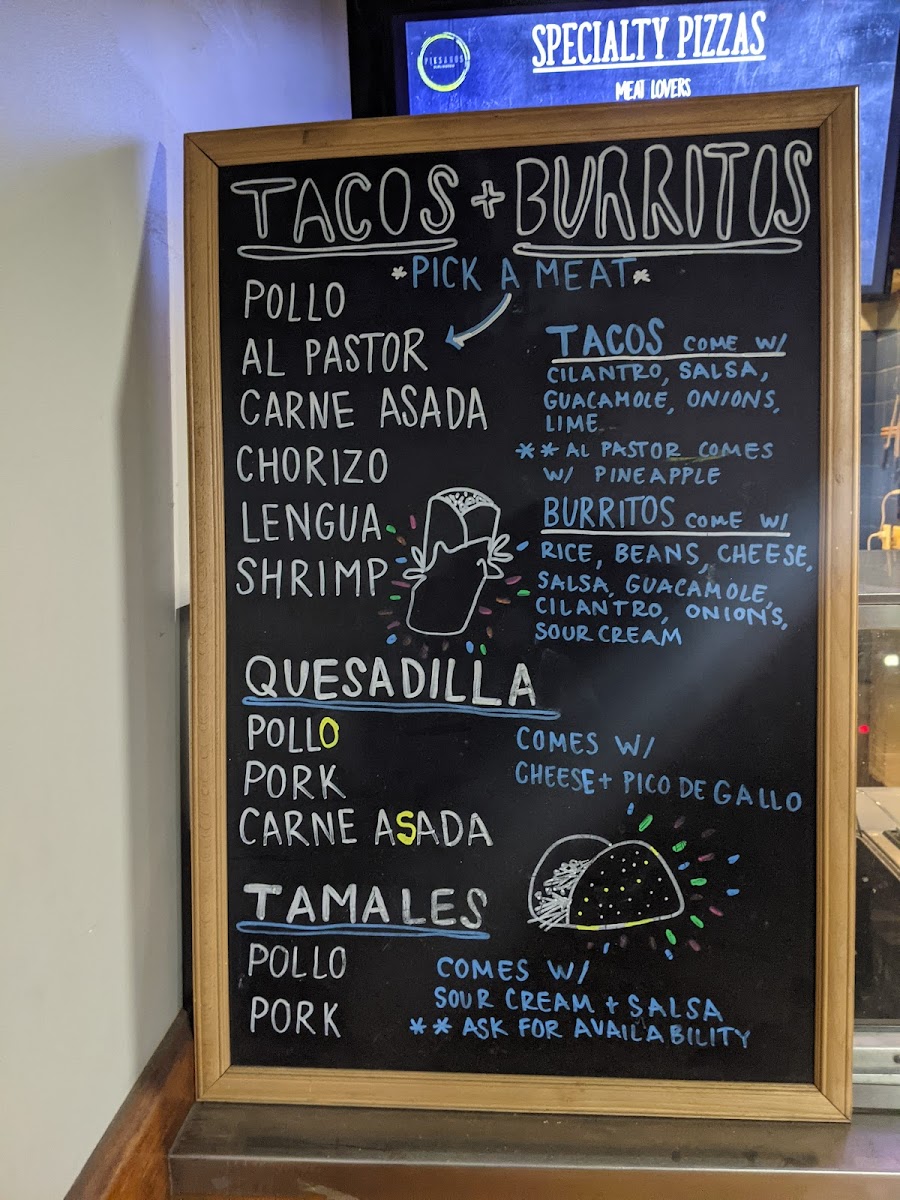 SPECIALTY PIZZAS
MEAT LOVERS
TACOS + BURRITOS
*PICK A MEAT*
POLLO
AL PASTOR
CARNE ASADA
CHORIZO
LENGUA
SHRIMP
TACOS COME W/
CILANTRO, SALSA,
GUACAMOLE, ONIONS,
LIME
** AL PASTOR COMES
W/ PINEAPPLE
BURRITOS COME W/
RICE, BEANS, CHEESE,
SALSA, GUACAMOLE,
CILANTRO, ONIONS,
SOUR CREAM
QUESADILLA
POLLO
PORK
CARNE ASADA
COMES W/
CHEESE + PICO DE GALLO
TAMALES
POLLO
PORK
COMES W/
SOUR CREAM + SALSA
** ASK FOR AVAILABILITY